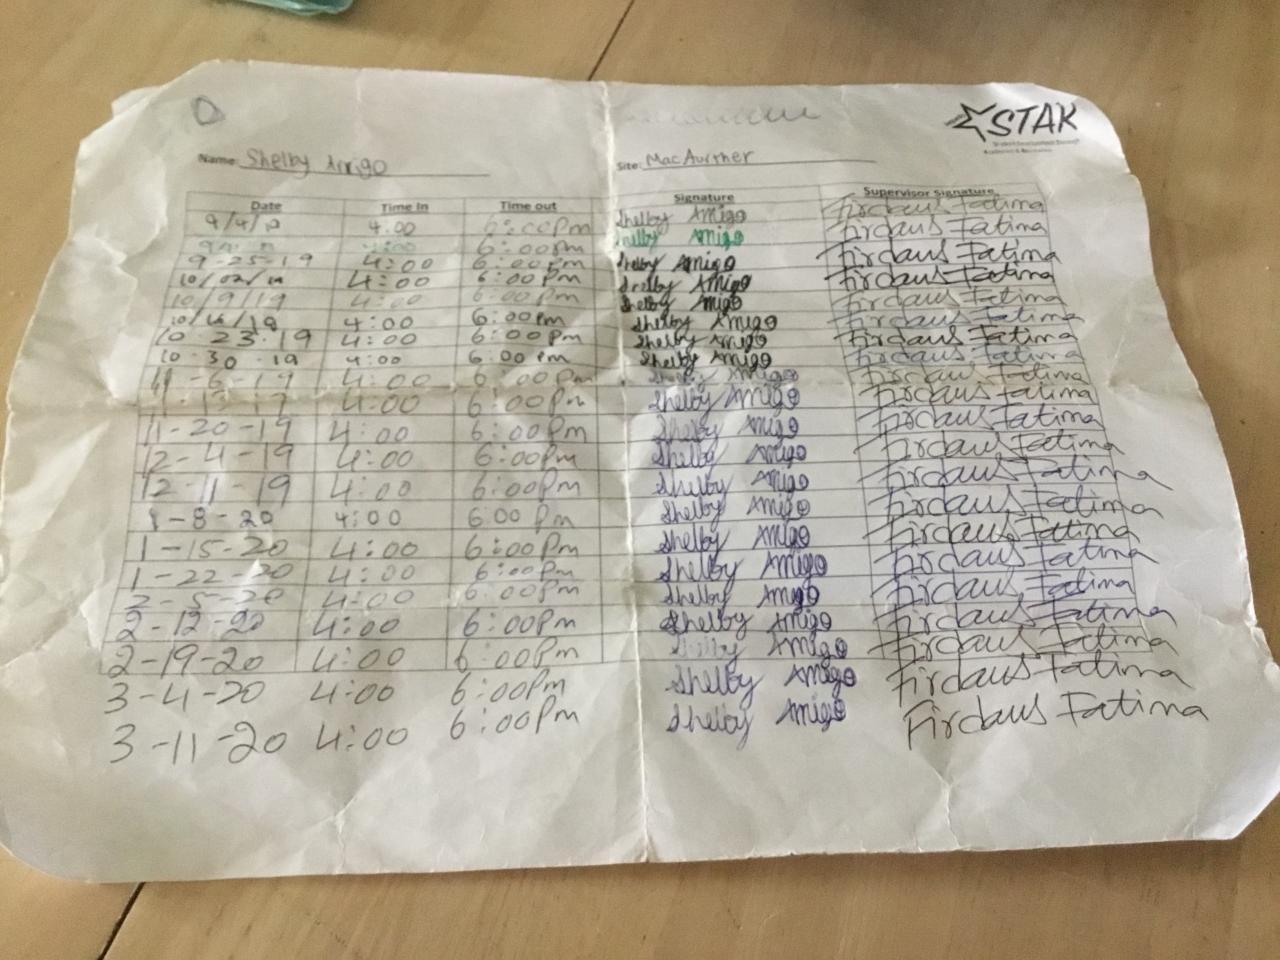 STAR
Name: Shelby Amigo Site: MacAurther
Date Time In Time out Signature Supervisor Signature
9/4/ 4:00 6:00Pm Shelby Amigo Firdaus Fatima
4:00 6:00Pm Shelby Amigo Firdaus Fatima
9-25-19 4:00 6:00Pm Shelby Amigo Firdaus Fatima
10/02/19 4:00 6:00Pm Shelby Amigo Firdaus Fatima
10/9/19 4:00 6:00Pm Shelby Amigo Firdaus Fatima
10/16/19 4:00 6:00Pm Shelby Amigo Firdaus Fatima
10-23-19 4:00 6:00Pm Shelby Amigo Firdaus Fatima
10-30-19 4:00 6:00Pm Shelby Amigo Firdaus Fatima
11-6-19 4:00 6:00Pm Shelby Amigo Firdaus Fatima
11-13-19 4:00 6:00Pm Shelby Amigo Firdaus Fatima
11-20-19 4:00 6:00Pm Shelby Amigo Firdaus Fatima
12-4-19 4:00 6:00Pm Shelby Amigo Firdaus Fatima
12-11-19 4:00 6:00Pm Shelby Amigo Firdaus Fatima
1-8-20 4:00 6:00Pm Shelby Amigo Firdaus Fatima
1-15-20 4:00 6:00Pm Shelby Amigo Firdaus Fatima
1-22-20 4:00 6:00Pm Shelby Amigo Firdaus Fatima
2-5-20 4:00 6:00Pm Shelby Amigo Firdaus Fatima
2-12-20 4:00 6:00Pm Shelby Amigo Firdaus Fatima
2-19-20 4:00 6:00Pm Shelby Amigo Firdaus Fatima
3-4-20 4:00 6:00Pm Shelby Amigo Firdaus Fatima
3-11-20 4:00 6:00Pm Shelby Amigo Firdaus Fatima